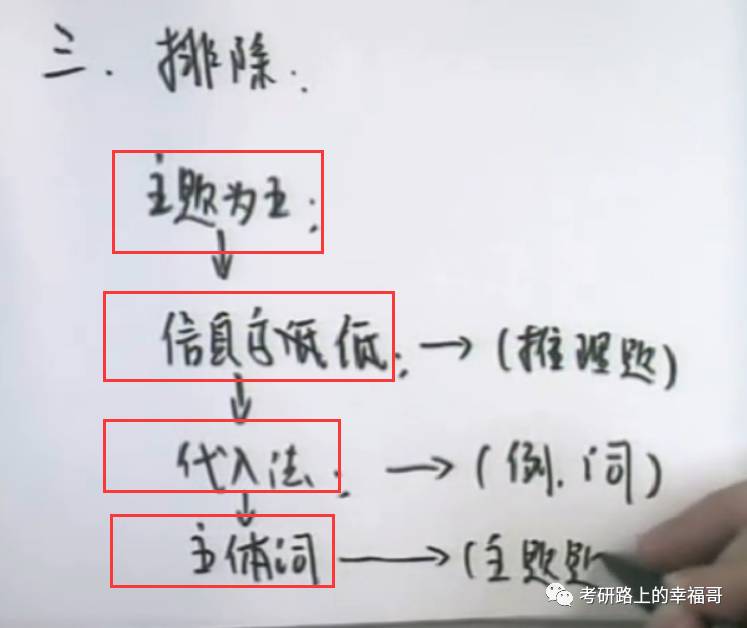 三. 排除.
主题为主;
信息高低低; → (推理题)
代入法; → (例.词)
主体词 → (主题题
考研路上的幸福哥